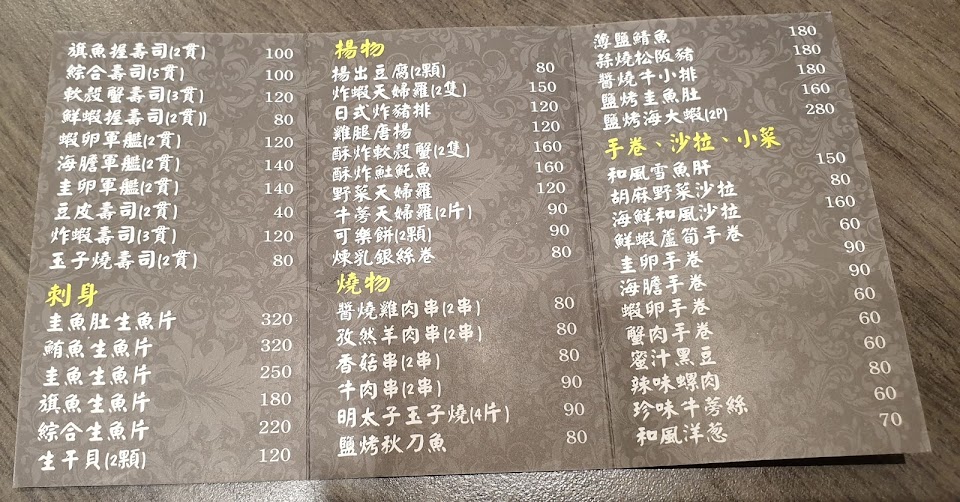 旗魚握壽司(2貫) 100
綜合壽司(5貫) 100
軟殼蟹壽司(3貫) 120
鮮蝦握壽司(2貫)) 80
蝦卵軍艦(2貫) 120
海膽軍艦(2貫) 140
圭卵軍艦(2貫) 140
豆皮壽司(2貫) 40
炸蝦壽司(3貫) 120
玉子燒壽司(2貫) 80
刺身
圭魚肚生魚片 320
鮪魚生魚片 320
圭魚生魚片 250
旗魚生魚片 180
綜合生魚片 220
生干貝(2顆) 120
揚物
揚出豆腐(2顆) 80
炸蝦天婦羅(2隻) 150
日式炸豬排 120
雞腿唐揚 120
酥炸軟殼蟹(2隻) 160
酥炸𩵚魠魚 160
野菜天婦羅 120
牛蒡天婦羅(2片) 90
可樂餅(2顆) 90
煉乳銀絲卷 80
燒物
醬燒雞肉串(2串) 80
孜然羊肉串(2串) 80
香菇串(2串) 80
牛肉串(2串) 90
明太子玉子燒(4片) 90
鹽烤秋刀魚 80
薄鹽鯖魚 180
蒜燒松阪豬 180
醬燒牛小排 180
鹽烤圭魚肚 160
鹽烤海大蝦(2P) 280
手卷、沙拉、小菜
和風雪魚肝 150
胡麻野菜沙拉 80
海鮮和風沙拉 160
鮮蝦蘆筍手卷 60
圭卵手卷 90
海膽手卷 90
蝦卵手卷 60
蟹肉手卷 60
蜜汁黑豆 60
辣味螺肉 80
珍味牛蒡絲 60
和風洋蔥 70